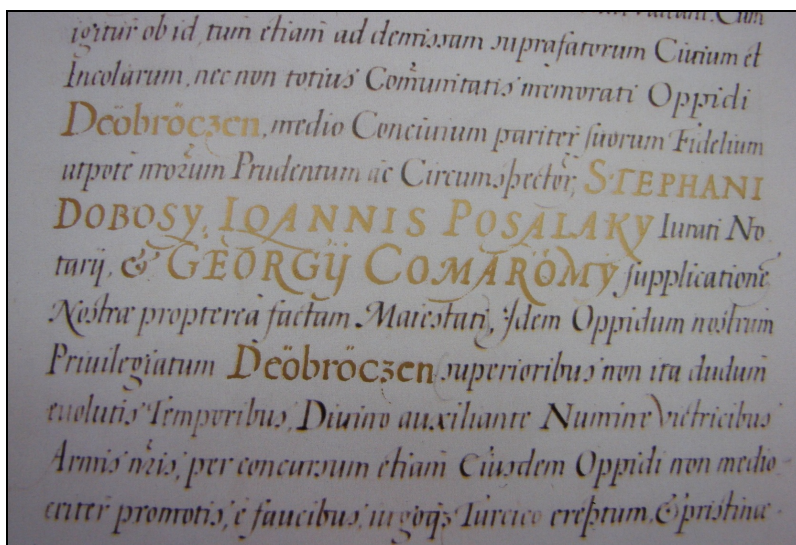 Cum
igitur ob id, tum etiam ad demissam suprafatorum Ciuium et
Incolarum, nec non totius Com̃unitatis memorati Oppidi
Deöbröczen, medio Conciuium pariter suorum Fidelium
utpote nr̃orum Prudentum ac Circumspector̃, STEPHANI
DOBOSY, IOANNIS POSALAKY Iurati No-
tarÿ, & GEORGÿ COMARÖMY supplicatione
Nostræ propterea factam Maiestati, Idem Oppidum nostrum
Priuilegiatum Deöbröczen superioribus non ita dudum
euolutis Temporibus, Diuino auxiliante Numine Victricibus
Armis nr̃is, per concursum etiam Eiusdem Oppidi non medio-
criter promotis, e faucibus, iugoq3 Turcico ereptum, & pristinæ